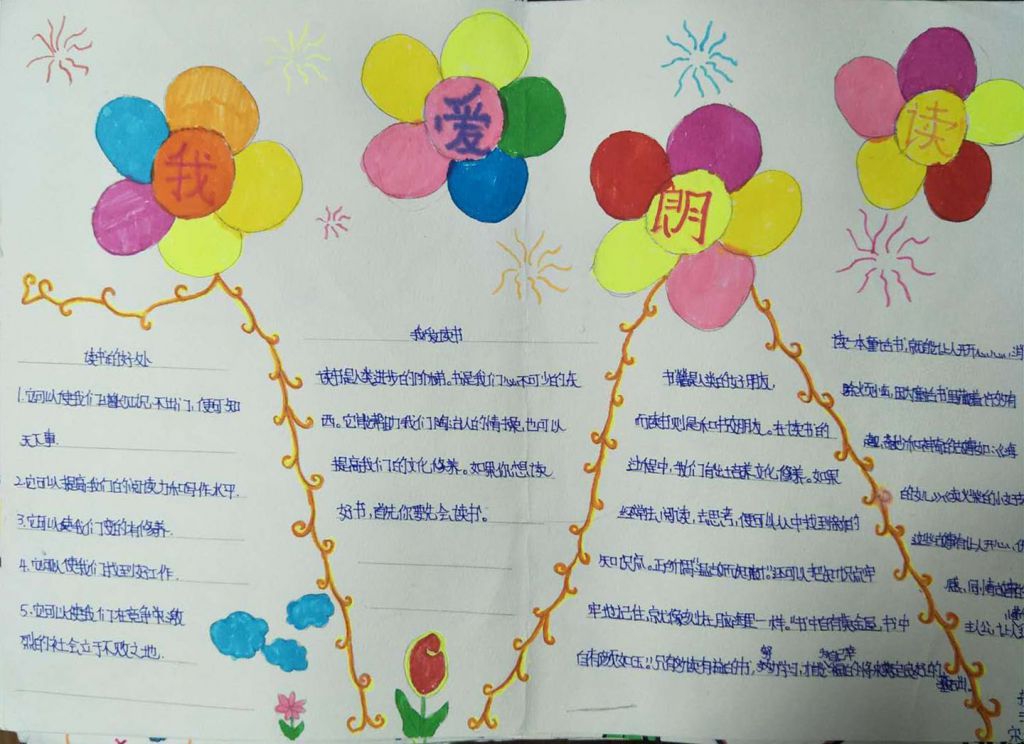 我爱朗读
读书的好处
1.它可以使我们增长知识,不出门,便可知
天下事.
2.它可以提高我们的阅读力和写作水平.
3.它可以使我们变的有修养.
4.它可以使我们找到好工作.
5.它可以使我们在竞争激
烈的社会立于不败之地.
我爱读书
读书是人类进步的阶梯。书是我们必不可少的东
西。它能帮助我们陶冶人的情操,也可以
提高我们的文化修养。如果你想读
好书,首先你要先会读书。
书籍是人类的好朋友,
而读书则是和书做朋友。在读书的
过程中,我们会培养文化修养。如果
经常去阅读,去思考,便可以从中找到
知识点。正所谓"温故而知新"。还可以把知识点牢
牢地记住,就像刻在脑海里一样。"书中自有黄金屋,书中
自有颜如玉。"只有多读有益的书,努力学习,才能
读一本童话书,就能让人开开心心,消
除
趣,
的女儿》《卖火柴的小女孩
这些故事有让人开心,
感,同情故事的
主人公,让人